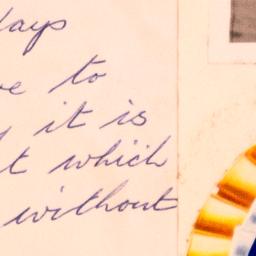 days
to
it is
which
without